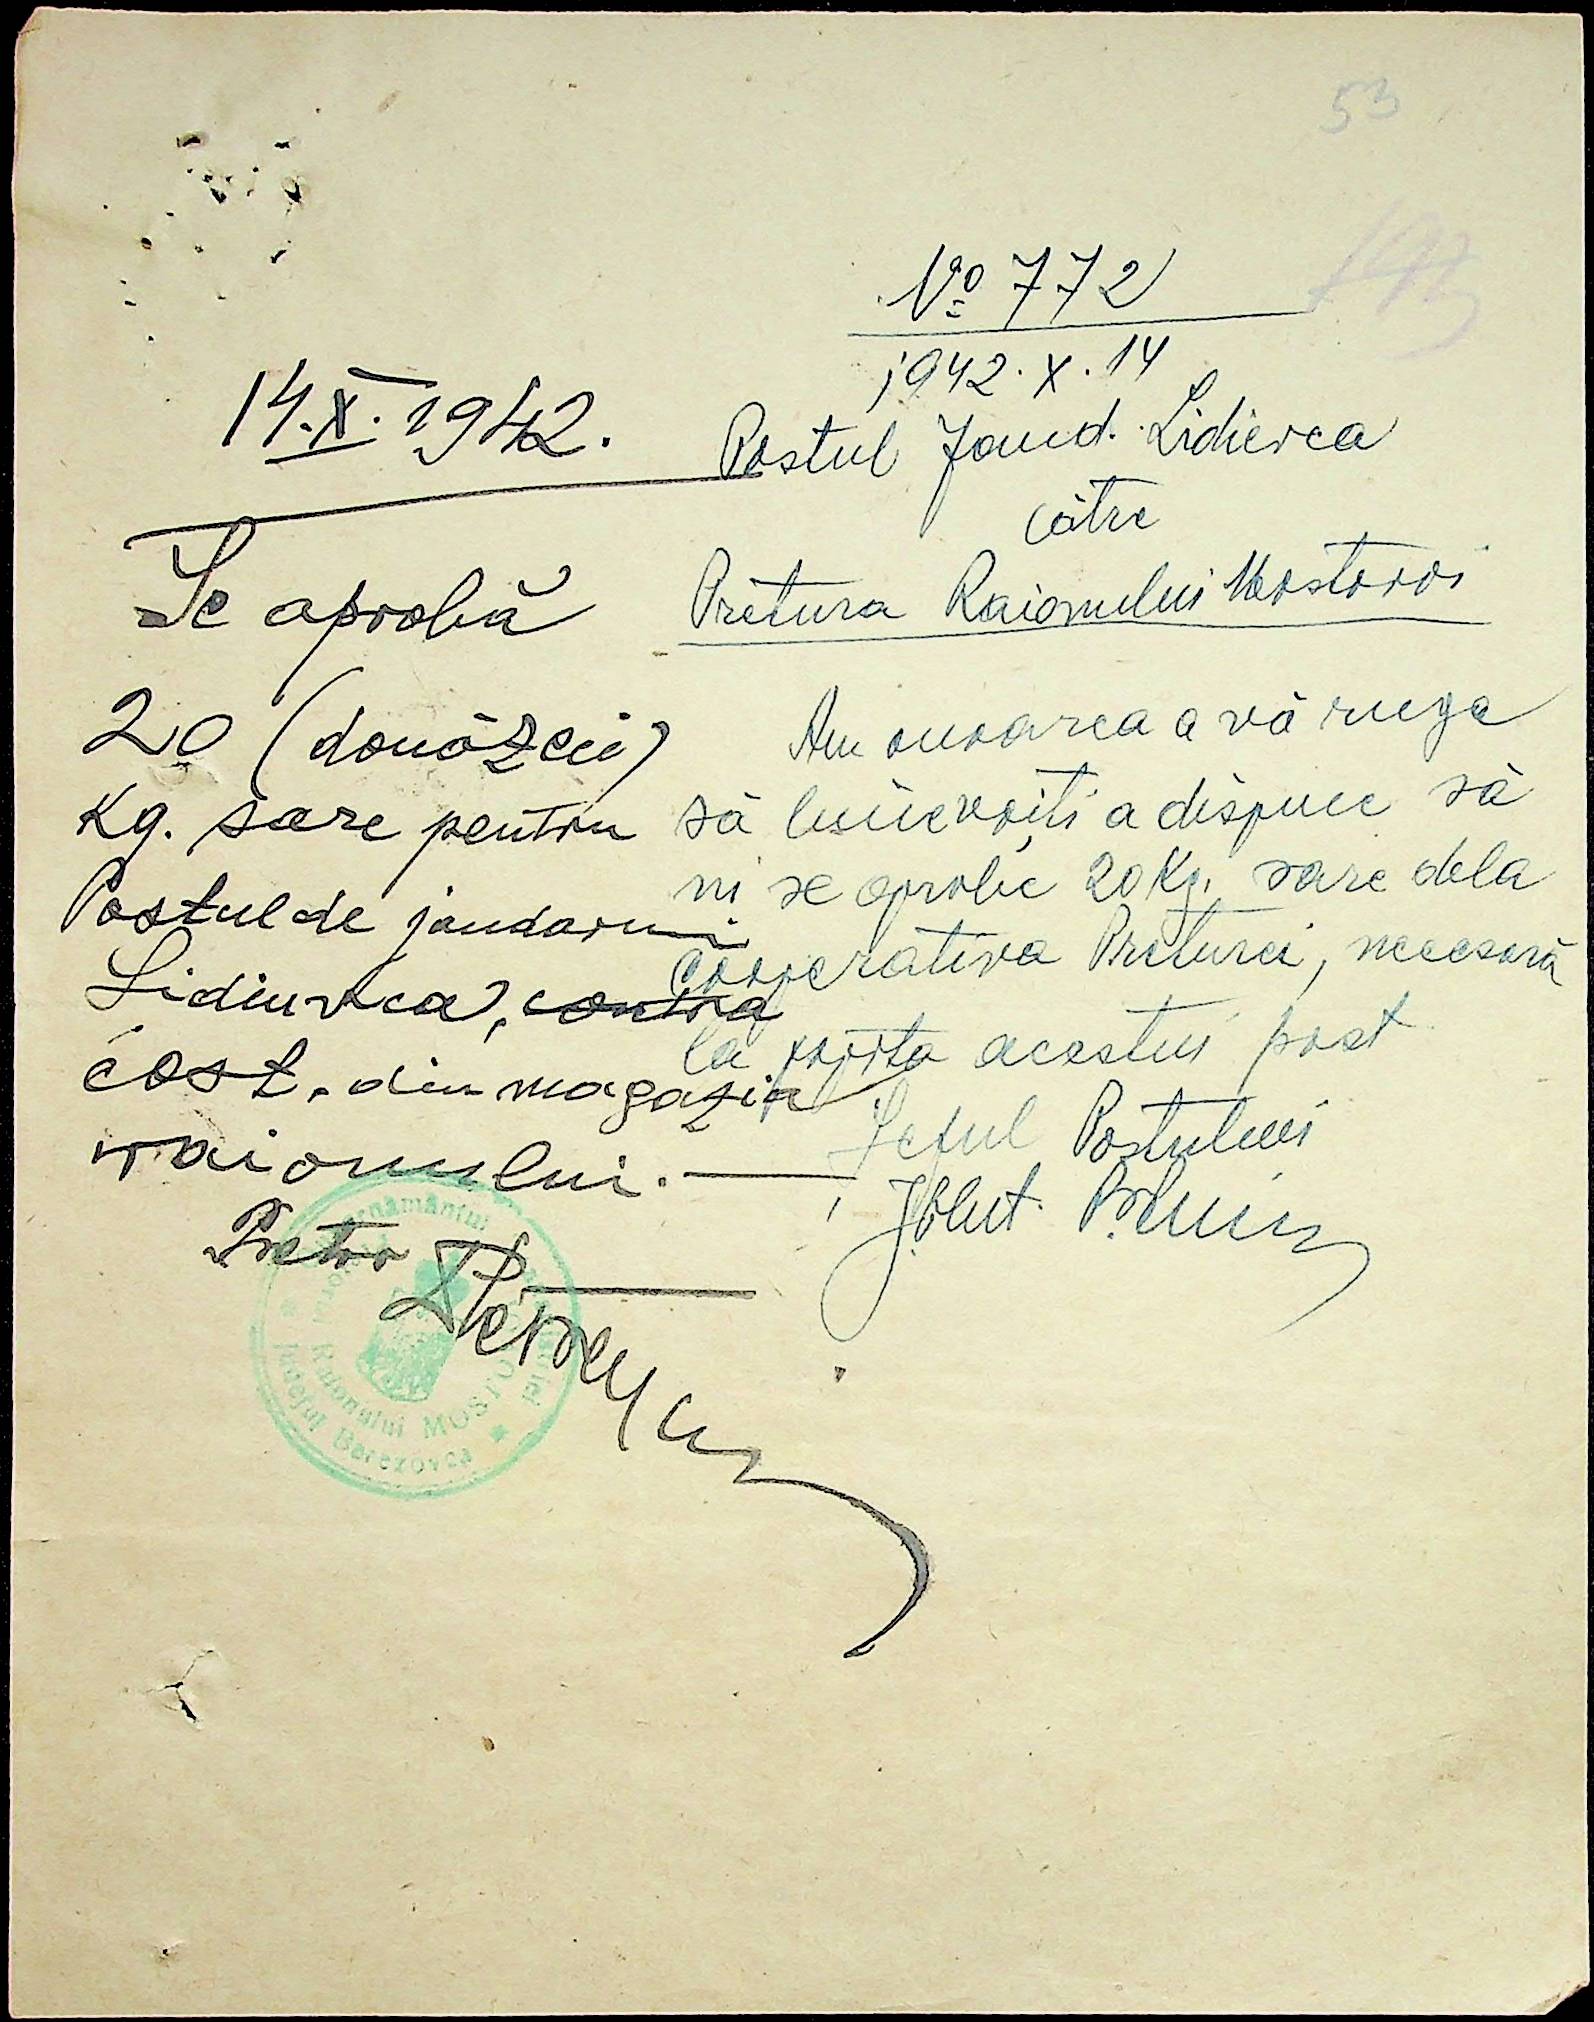 53
No 772
1942.X.14
Postul Jand. Lidievca
către
Pretura Raionului Mostovoi
Am onoarea a vă ruga
să binevoiți a dispune să
ni se aprobe 20 Kg. sare dela
Cooperativa Preturei, necesară
la popota acestui post
Șeful Postului
14.X.1942.
Se aprobă
20 (douăzeci)
Kg. sare pentru
Postul de jandarmi
Lidievca, contra
cost. din magazia
raionului.
Pretor
Raionului MOSTOVOI
Județul Berezovca